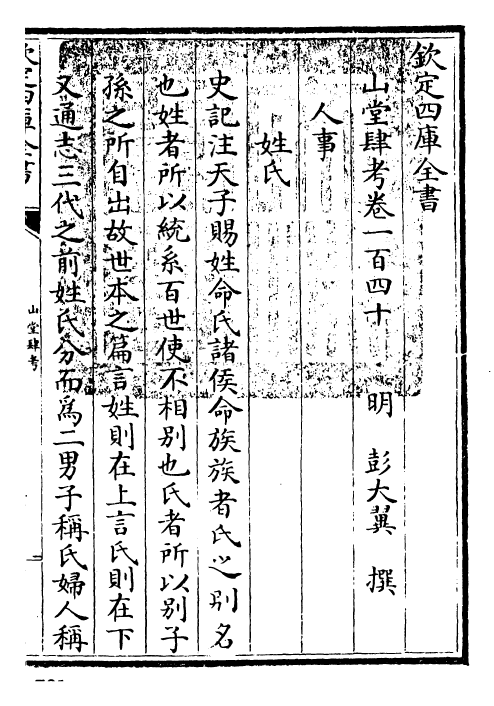 欽定四庫全書
山堂肆考卷一百四十　明　彭大翼　撰
人事
姓氏
史記注天子賜姓命氏諸侯命族族者氏之别名
也姓者所以統系百世使不相别也氏者所以别子
孫之所自出故世本之篇言姓則在上言氏則在下
又通志三代之前姓氏分而為二男子稱氏婦人稱
欽定四庫全書
山堂肆考